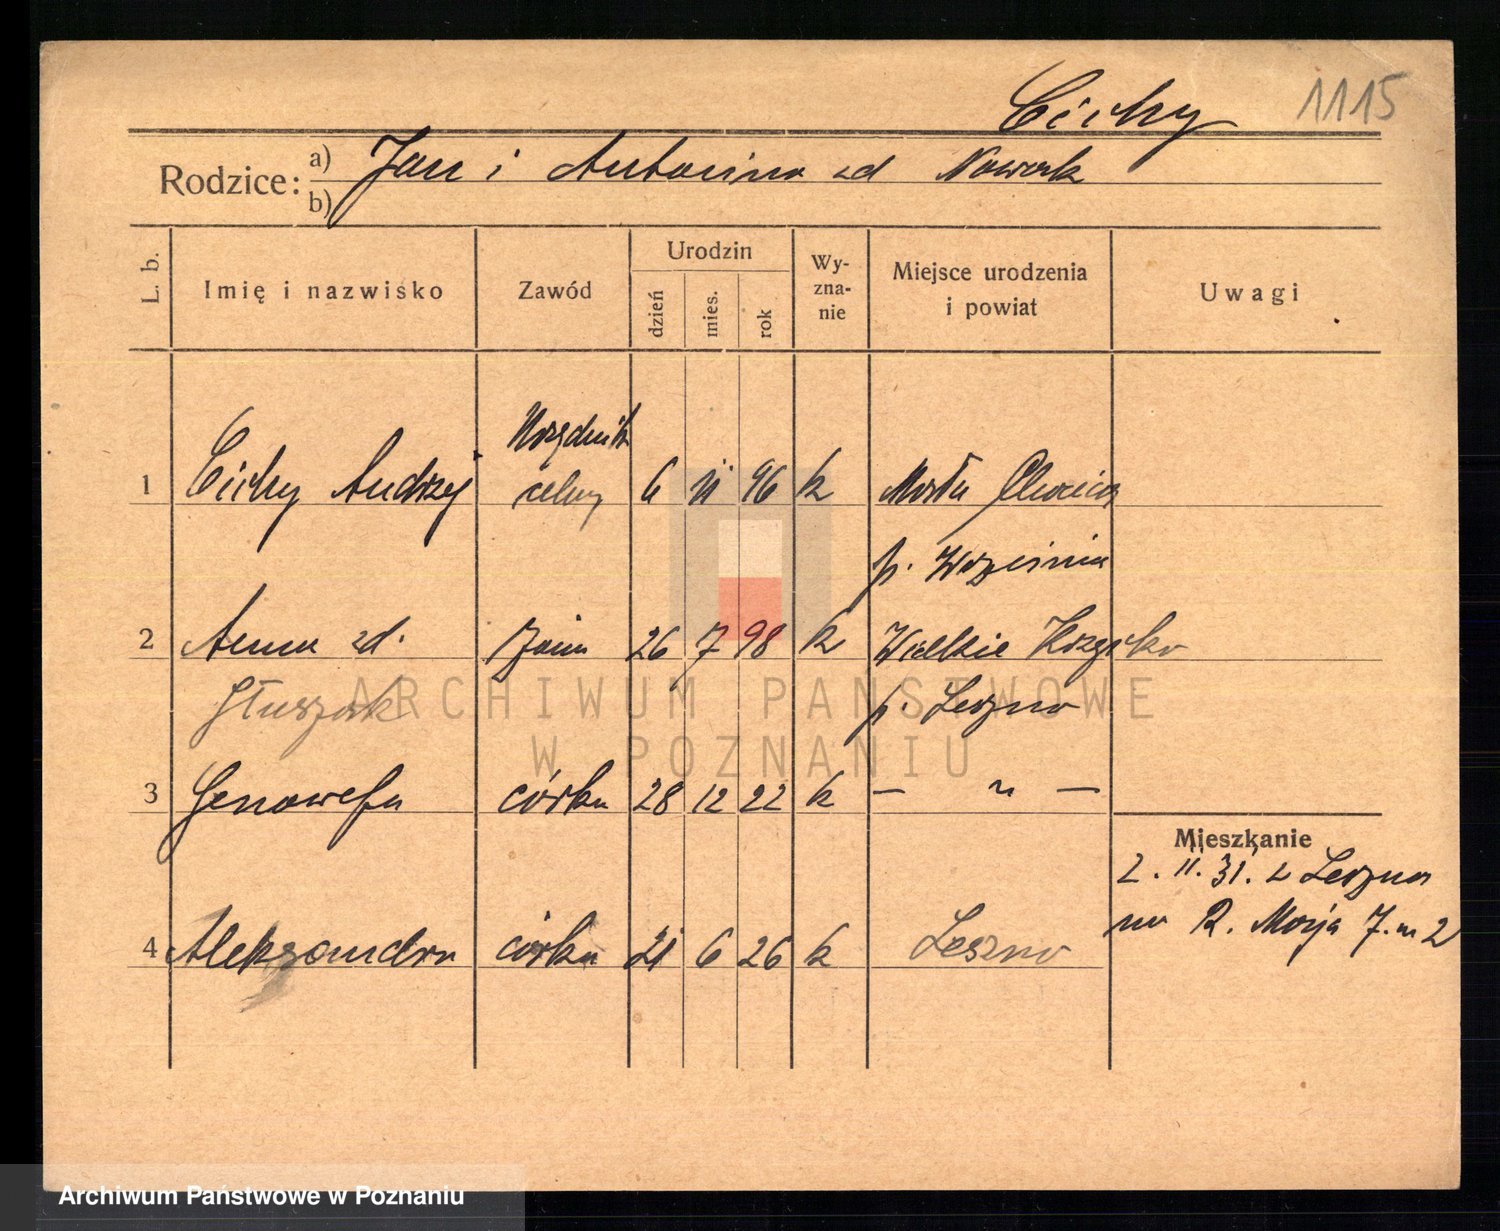 Cichy 1115
Rodzice: a) Jan i Antonina zd Nowak
b)
L. b. Imię i nazwisko Zawód Urodzin dzień mies. rok Wy-zna-nie Miejsce urodzenia i powiat Uwagi
Urzędnik
1 Cichy Andrzej celny 6 11 96 k
p. Września
2 Anna zd. żona 26 7 98 k Wielkie
Głuszak p. Leszno
3 Genowefa córka 28 12 22 k — " —
Mieszkanie
2. II. 31. z Leszna
4 Aleksandra córka 21 6 26 k Leszno na R. 7. m 2
ARCHIWUM PAŃSTWOWE
W POZNANIU
Archiwum Państwowe w Poznaniu